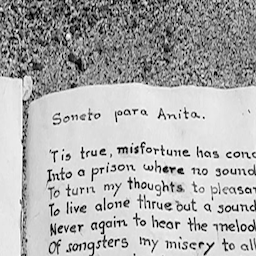 Soneto para Anita.
'Tis true, misfortune has conc
Into a prison where no sound
To turn my thoughts to pleasa
To live alone thrue out a sound
Never again to hear the melod
Of songsters my misery to all